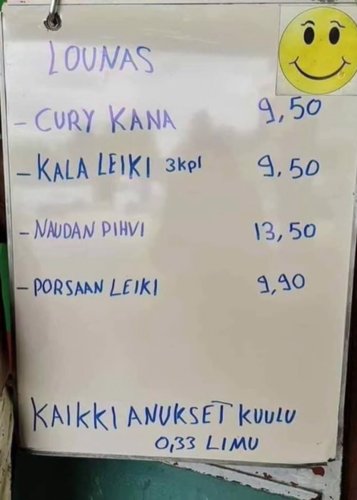 LOUNAS
- CURY KANA 9,50
- KALA LEIKI 3kpl 9,50
- NAUDAN PIHVI 13,50
- PORSAAN LEIKI 9,90
KAIKKI ANUKSET KUULU
0,33 LIMU